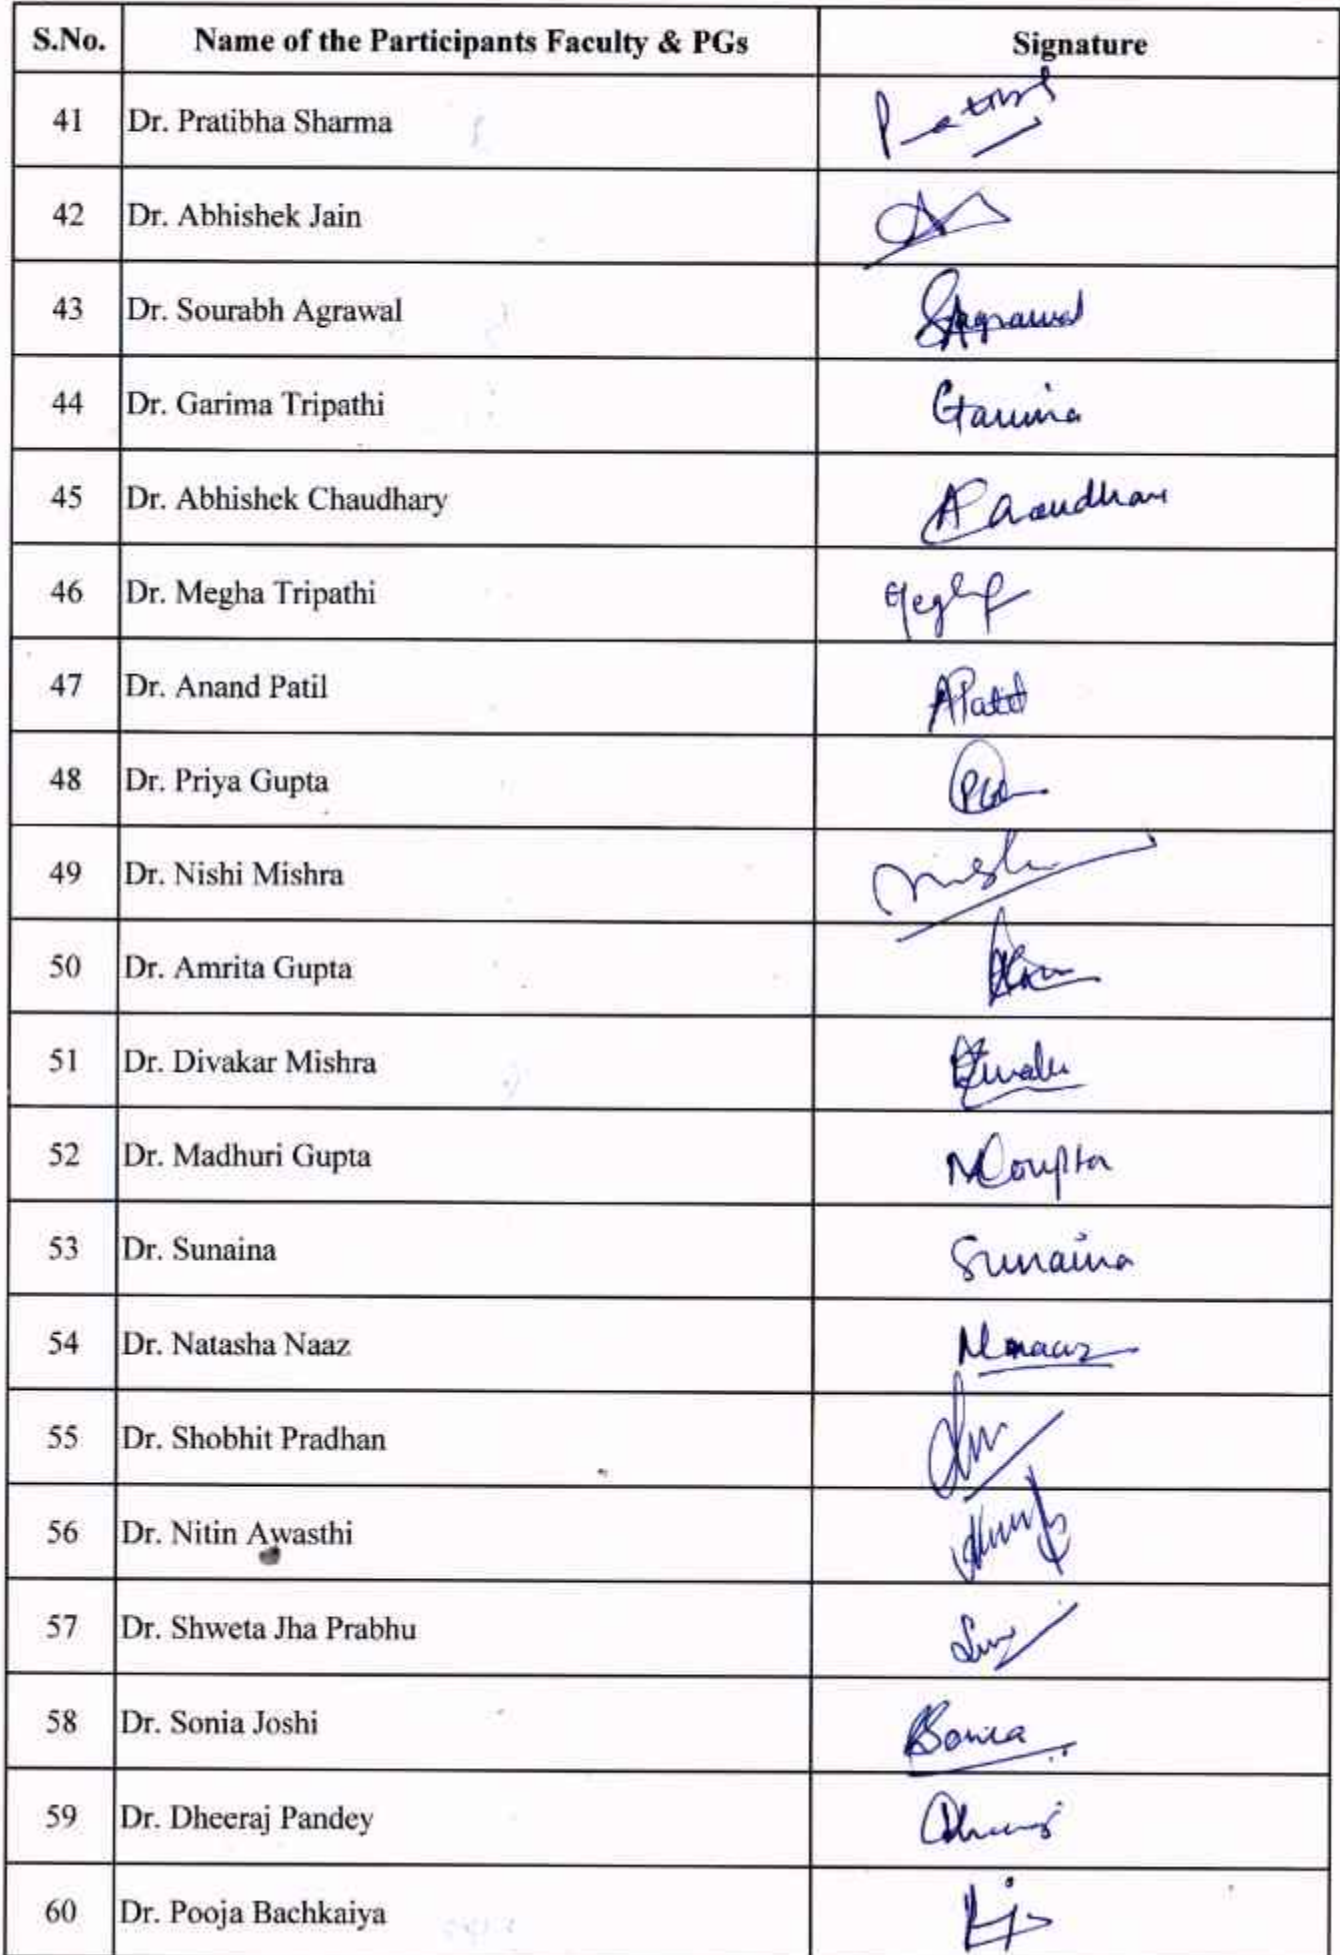 S.No. Name of the Participants Faculty & PGs Signature
41 Dr. Pratibha Sharma
42 Dr. Abhishek Jain
43 Dr. Sourabh Agrawal SAgrawal
44 Dr. Garima Tripathi Garima
45 Dr. Abhishek Chaudhary
46 Dr. Megha Tripathi
47 Dr. Anand Patil APatil
48 Dr. Priya Gupta
49 Dr. Nishi Mishra
50 Dr. Amrita Gupta
51 Dr. Divakar Mishra
52 Dr. Madhuri Gupta MGupta
53 Dr. Sunaina Sunaina
54 Dr. Natasha Naaz N naaz
55 Dr. Shobhit Pradhan
56 Dr. Nitin Awasthi
57 Dr. Shweta Jha Prabhu
58 Dr. Sonia Joshi Sonia
59 Dr. Dheeraj Pandey
60 Dr. Pooja Bachkaiya